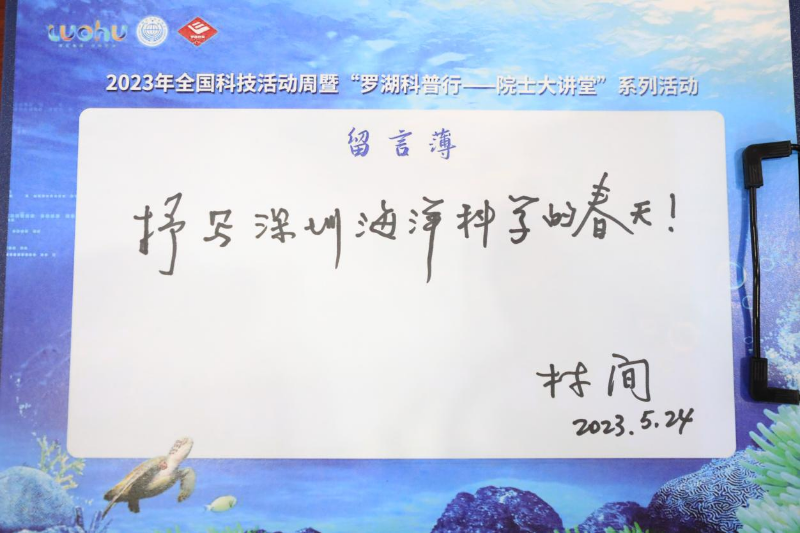 luohu
2023年全国科技活动周暨“罗湖科普行——院士大讲堂”系列活动
留言薄
抒写深圳海洋科学的春天!
林间
2023.5.24